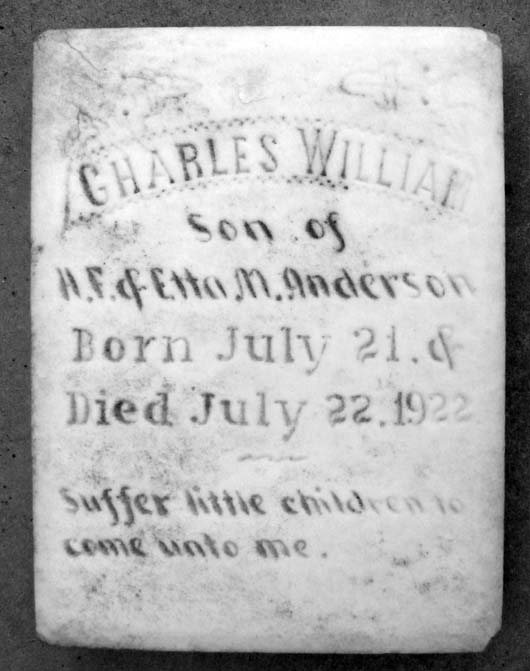 CHARLES WILLIAM
Son of
H. F. & Etta M. Anderson
Born July 21. &
Died July 22. 1922
Suffer little children to
come unto me.